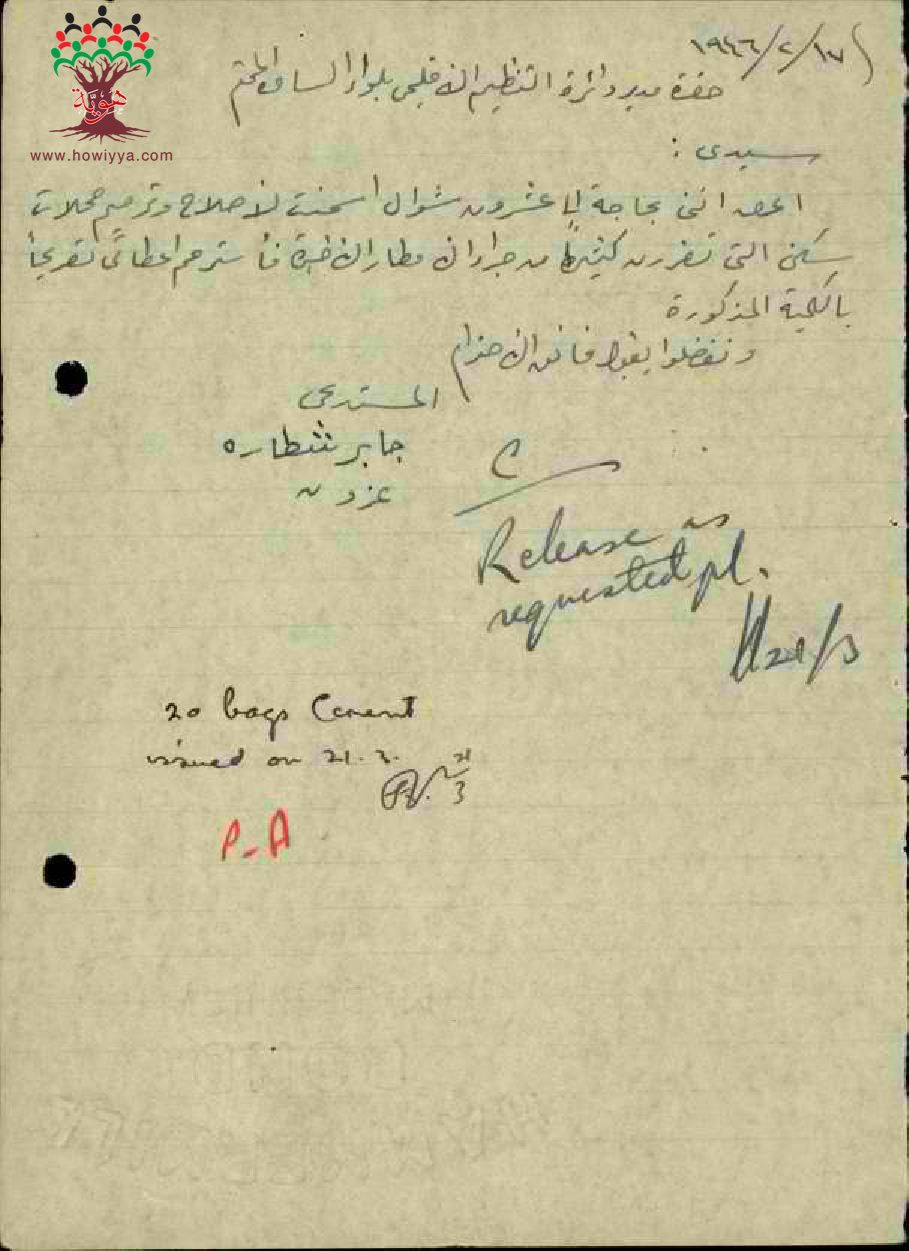 هوية
www.howiyya.com
١٩٤٦/٢/١٧
حضرة مدير دائرة التنظيم الاقليمي بلواء السامرة المحترم
سيدي :
اعرض انني بحاجة الى عشرون شوال اسمنت لاصلاح وترميم محلات
سكني التي تضررت كثيرا من جراء الامطار الاخيرة فأسترحم اعطائي تصريحا
بالكمية المذكورة
وتفضلوا بقبول فائق الاحترام
المستدعي
جابر شطاره
عزون
Release as
requested pl.
20 bags Cement
issued on 21.3.
21/3
P-A